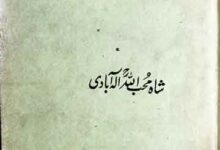 شاہ محب اللہؒ الہ آبادی